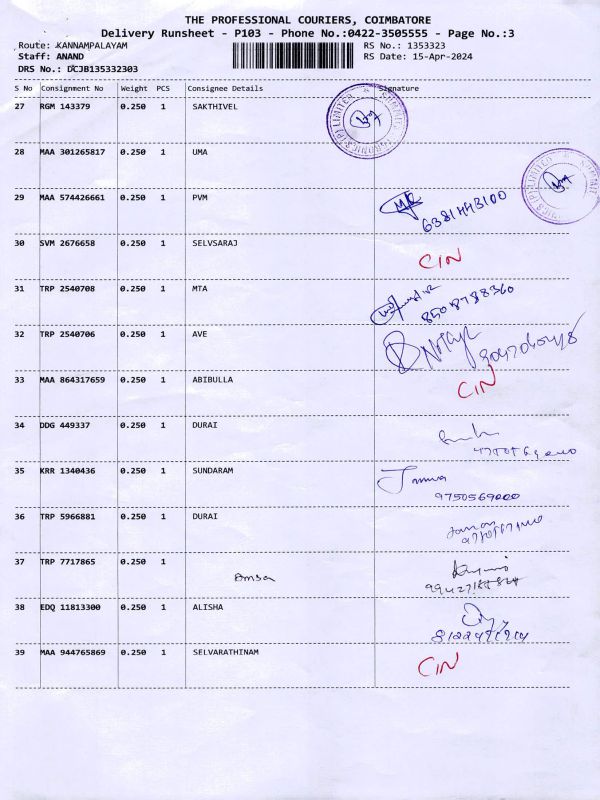 THE PROFESSIONAL COURIERS, COIMBATORE
Delivery Runsheet - P103 - Phone No.:0422-3505555 - Page No.:3
Route: KANNAMPALAYAM RS No.: 1353323
Staff: ANAND RS Date: 15-Apr-2024
DRS No.: DCJB135332303
S No Consignment No Weight PCS Consignee Details Signature
27 RGM 143379 0.250 1 SAKTHIVEL
28 MAA 301265817 0.250 1 UMA
29 MAA 574426661 0.250 1 PVM
6381443100
30 SVM 2676658 0.250 1 SELVSARAJ CIN
31 TRP 2540708 0.250 1 MTA
8508788360
32 TRP 2540706 0.250 1 AVE
33 MAA 864317659 0.250 1 ABIBULLA CIN
34 DDG 449337 0.250 1 DURAI
35 KRR 1340436 0.250 1 SUNDARAM
9750569000
36 TRP 5966881 0.250 1 DURAI
37 TRP 7717865 0.250 1
38 EDQ 11813300 0.250 1 ALISHA
39 MAA 944765869 0.250 1 SELVARATHINAM CIN